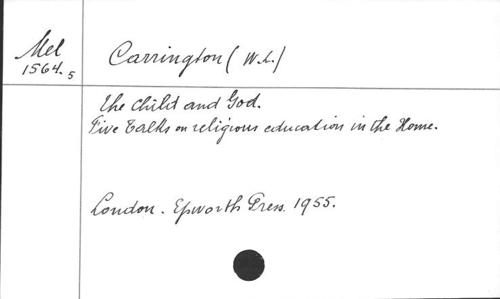 Mel
1564.5
Carrington (W.L.)
The Child and God.
Five Talks on religious education in the Home.
London. Epworth Press. 1955.